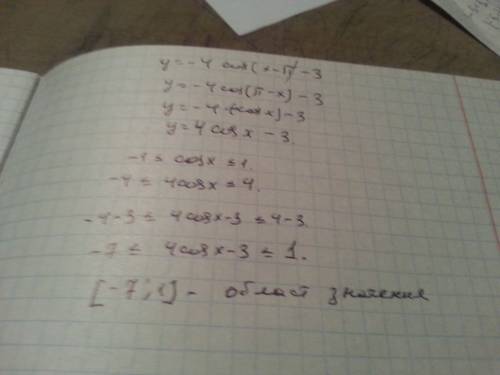 y = -4 cos(x-π) - 3
y = -4 cos(π-x) - 3
y = -4·(-cos x) - 3
y = 4 cos x - 3.
-1 ≤ cos x ≤ 1.
-4 ≤ 4cos x ≤ 4.
-4-3 ≤ 4cos x-3 ≤ 4-3.
-7 ≤ 4cos x-3 ≤ 1.
[-7;1] - област значения